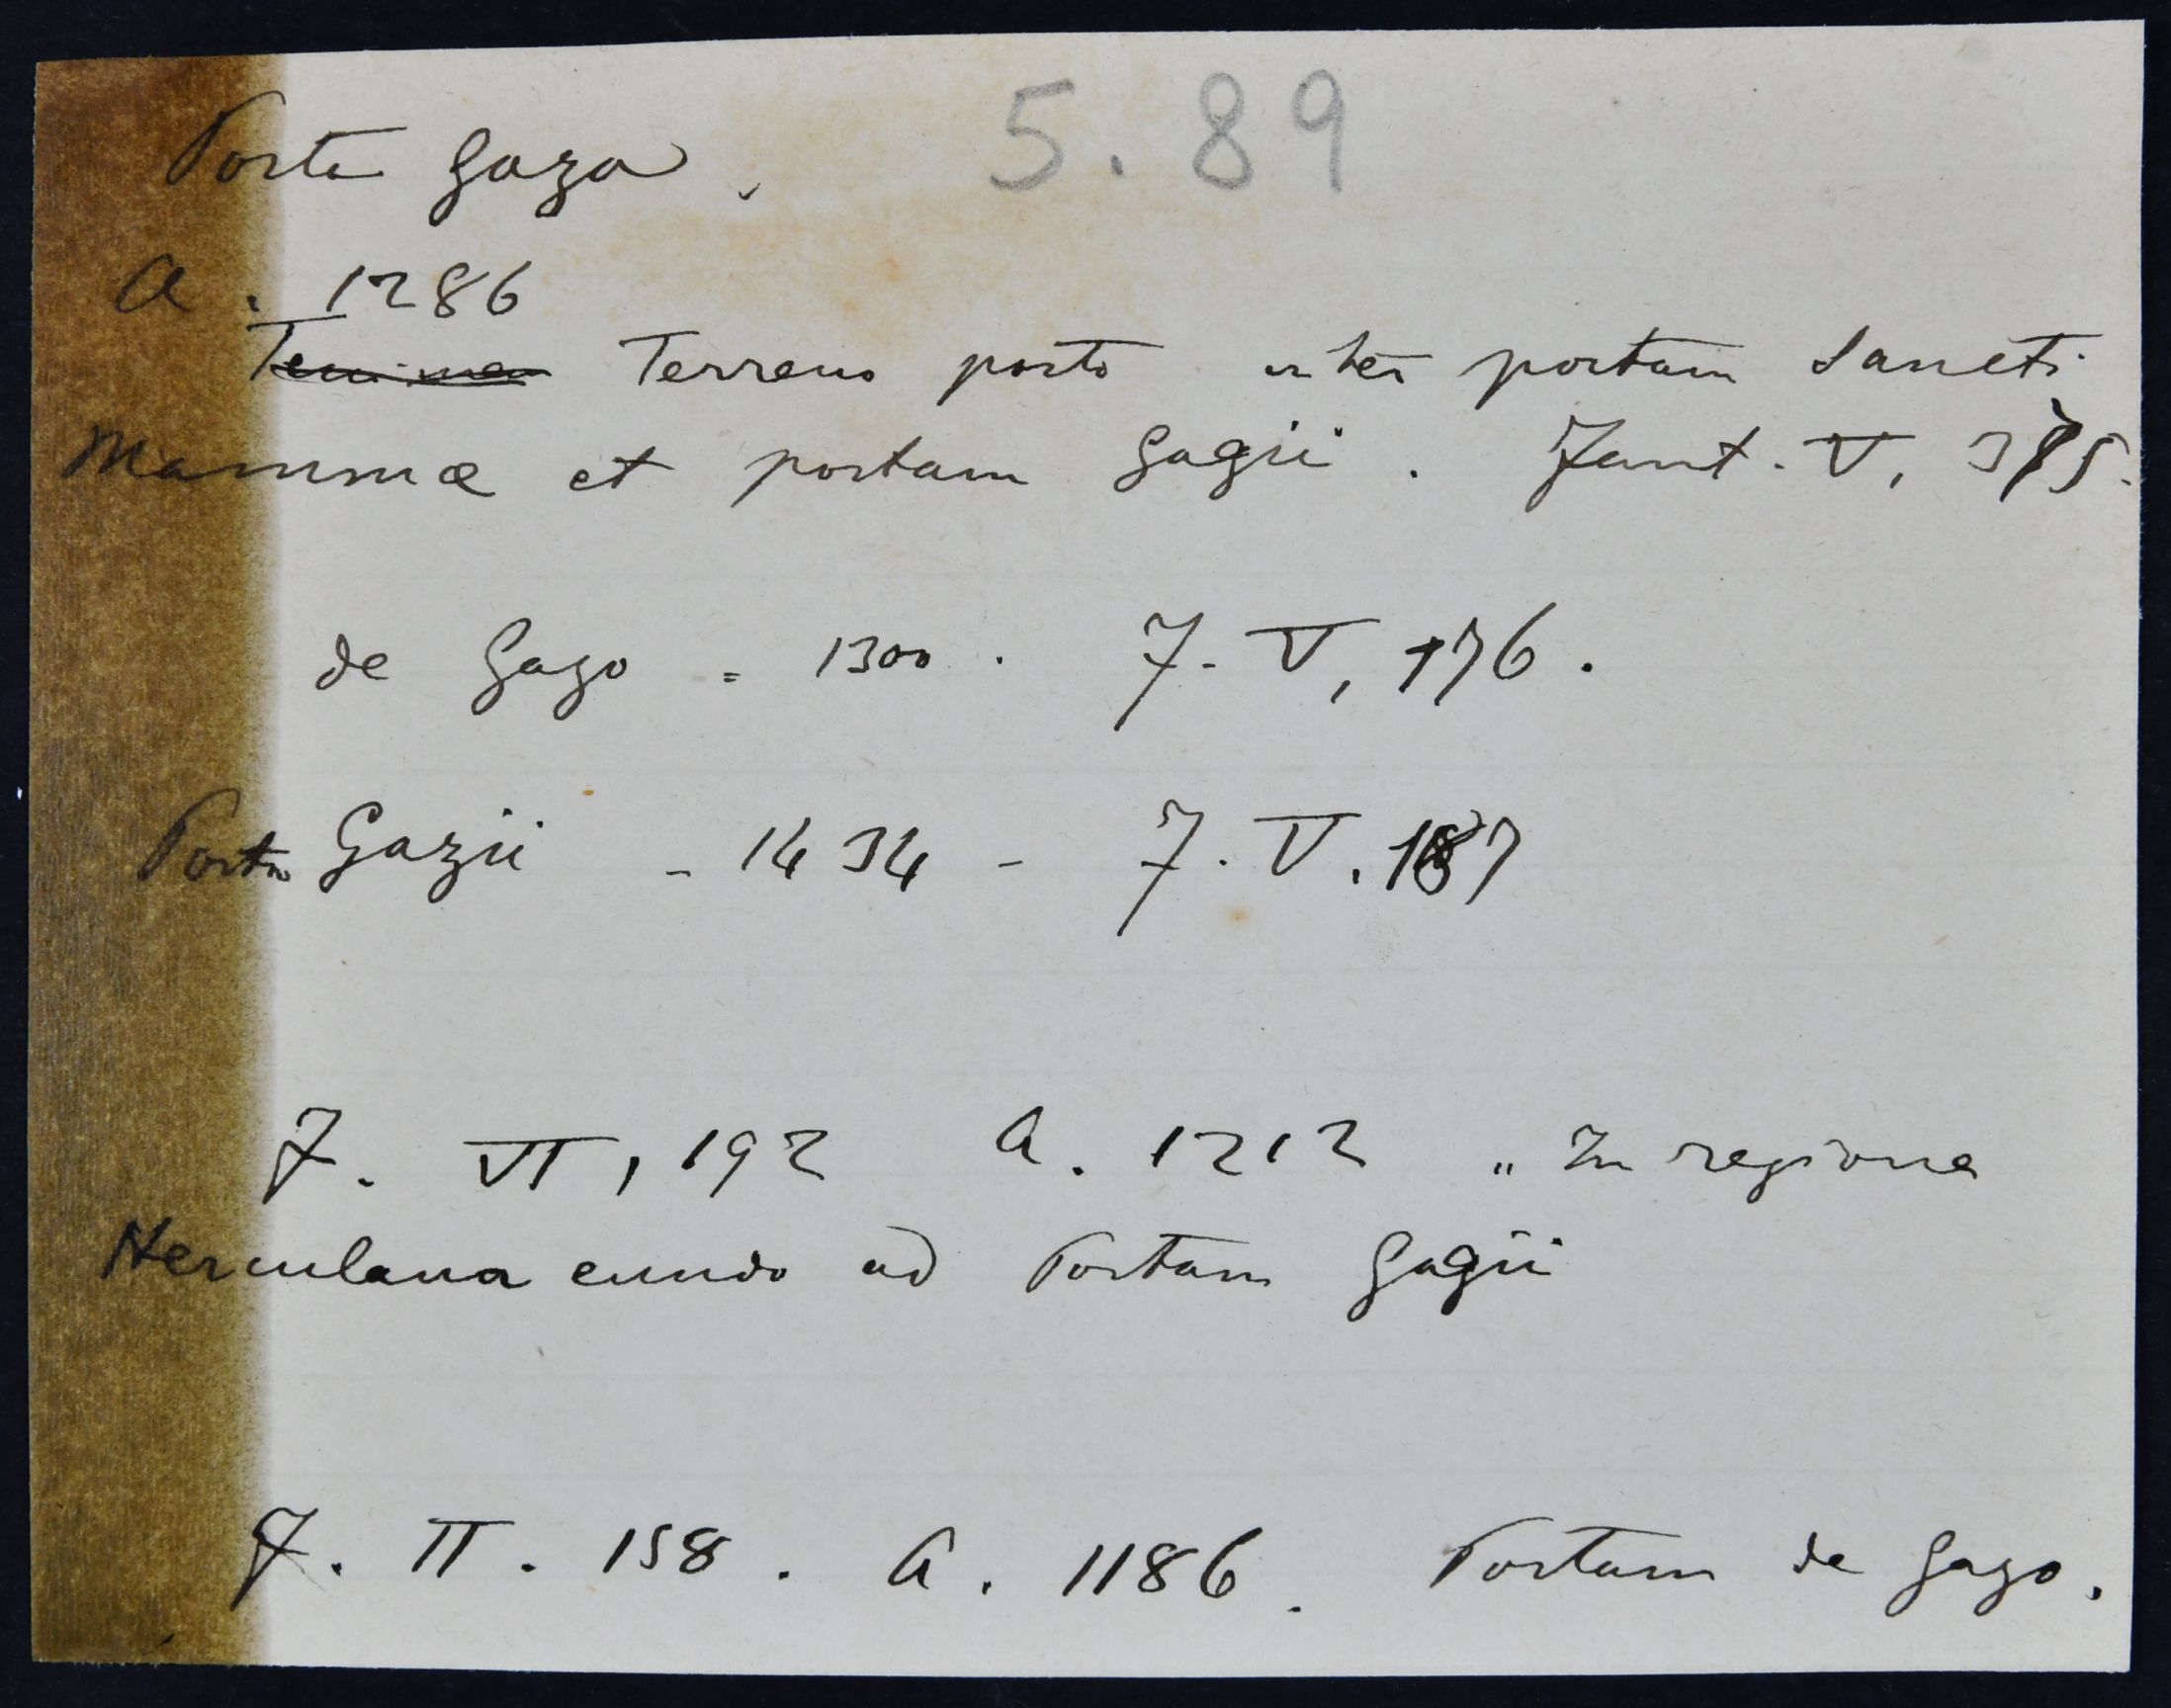 Porta Gazo . 5.89
A. 1286
Terreno posto inter portam Sancti
Mammæ et portam Gagii . Fant. V, 375.
de Gazo = 1300 . F. V, 176.
Porta Gazii - 1434 - F. V. 187
F. VI, 192 A. 1212 „ In regione
Herculana eundo ad Portam Gagii
F. II. 158 . A. 1186 . Portam de Gazo.